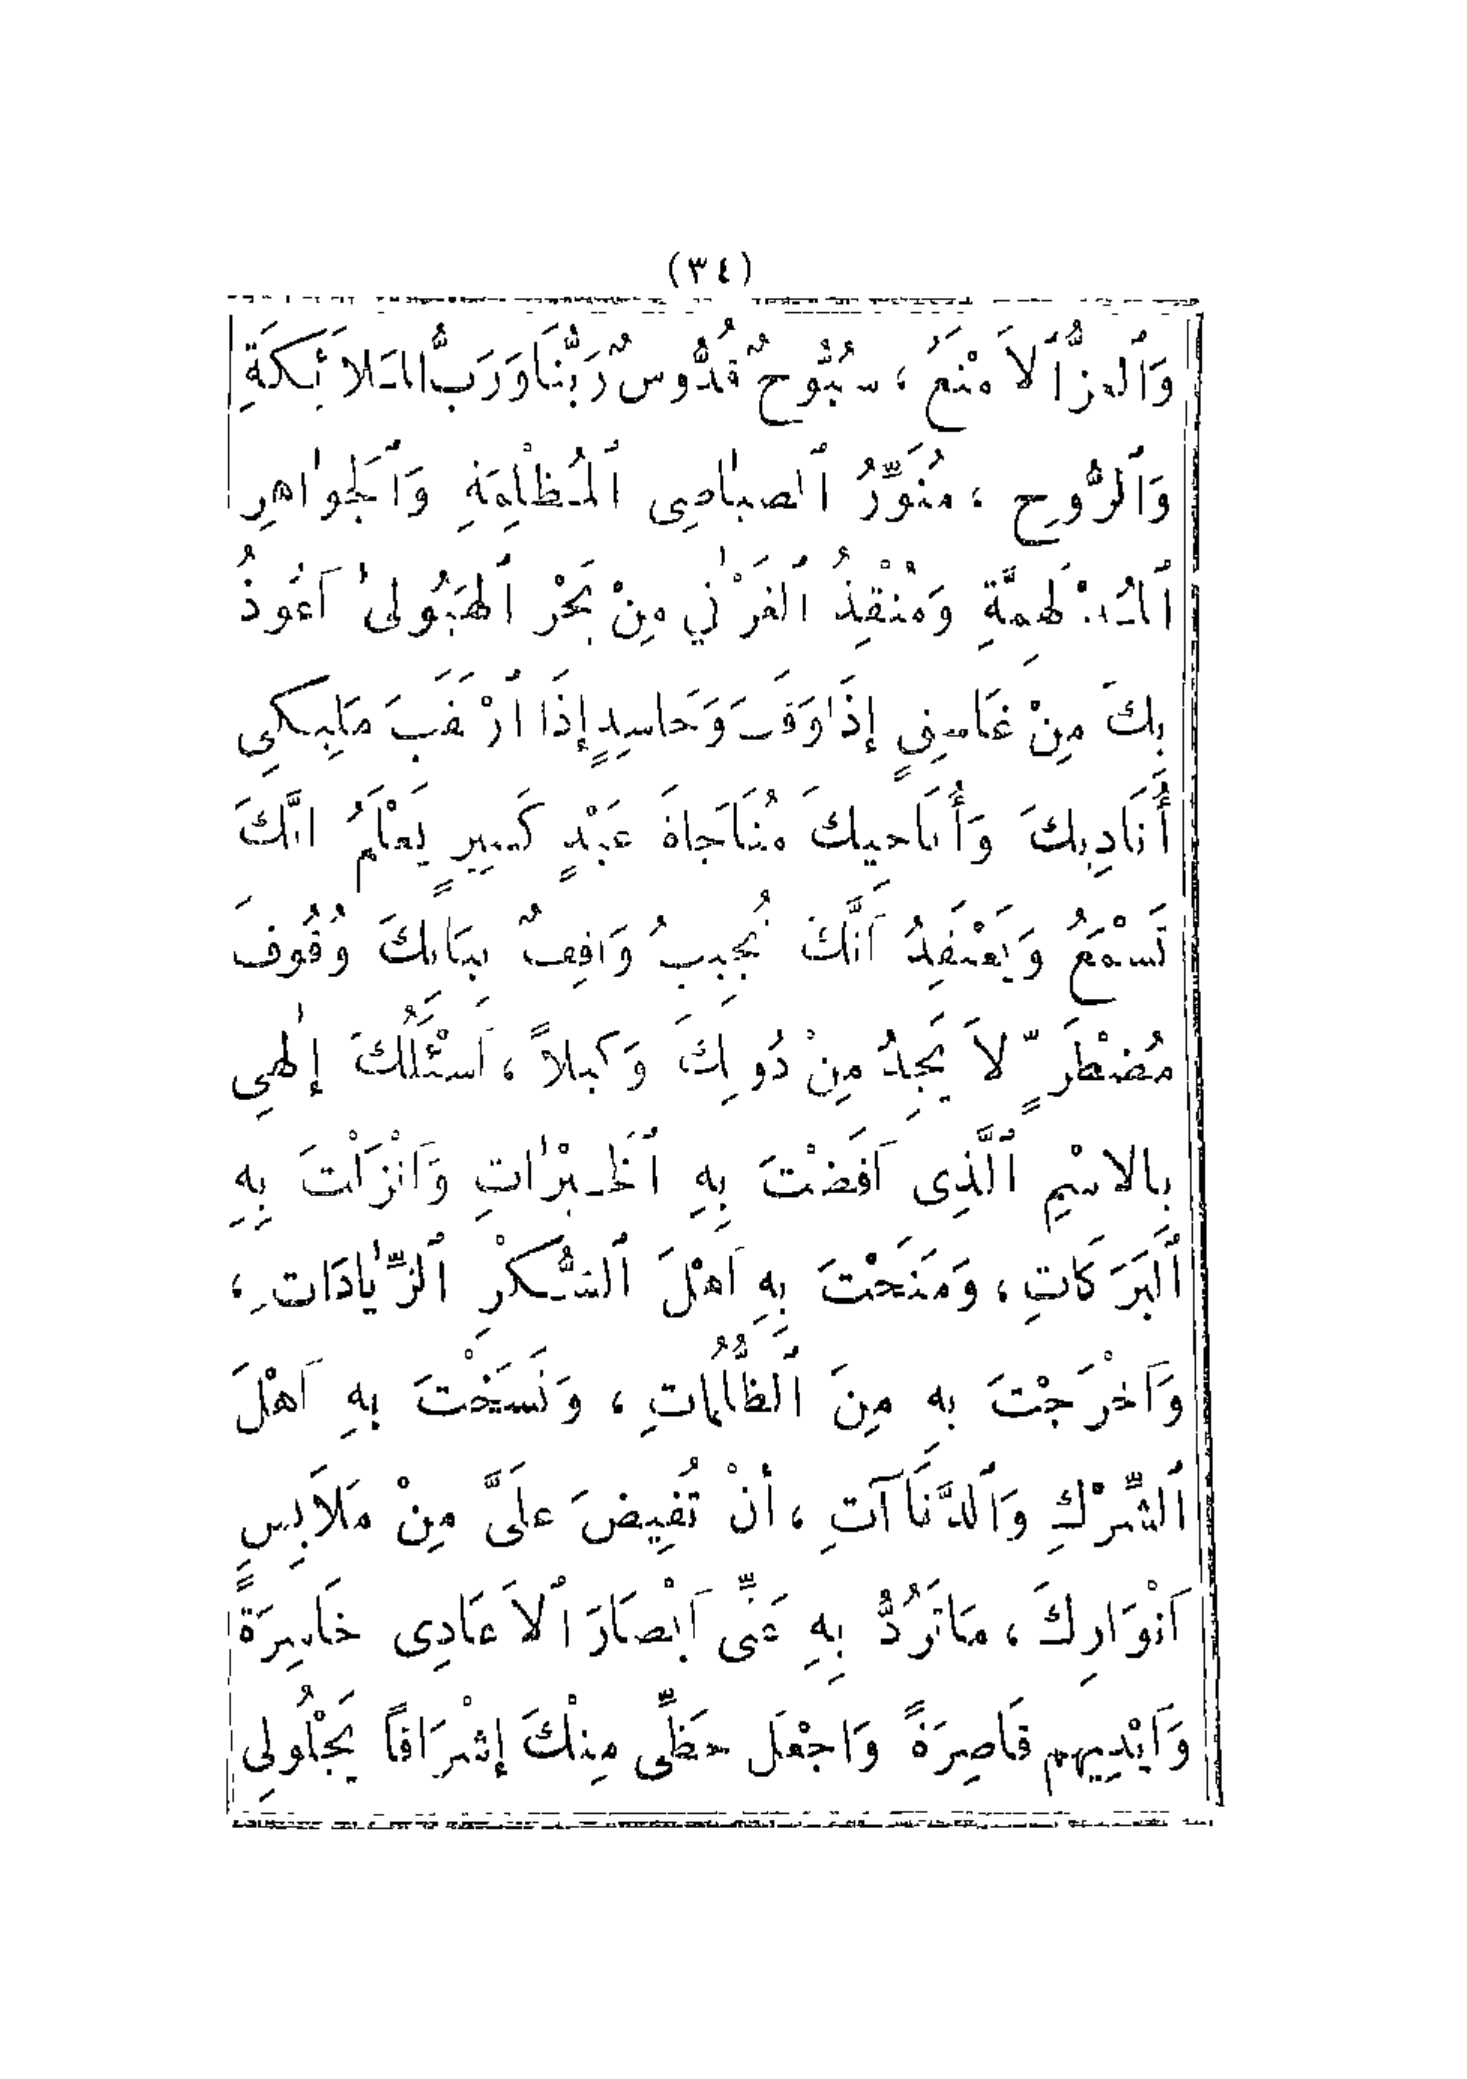 (٣٤)
وَٱلعِزُّ ٱلاَمْنَعُ ، سُبُّوحٌ قُدُّوسٌ رَبُّنَا وَرَبُّ المَلاَئِكَةِ
وَٱلرُّوحِ ، مُنَوِّرُ ٱلصيٰاصِى ٱلمُظْلِمَةِ وَٱلجَوٰاهِرِ
ٱلمُدْلَهِمَّةِ وَمُنْقِذُ ٱلغَرْقٰي مِنْ بَحْرِ ٱلهَيُولىٰ اَعُوذُ
بِكَ مِنْ غَاسِقٍ إِذَا وَقَبَ وَحَاسِدٍ إِذَا ٱرْتَقَبَ مَلِيكِي
أُنَادِيكَ وَأُنَاجِيكَ مُنَاجَاةَ عَبْدٍ كَسِيرٍ يَعْلَمُ انَّكَ
تَسْمَعُ وَيَعْتَقِدُ اَنَّكَ تُجِيبُ وَاقِفٌ بِبَابِكَ وُقُوفَ
مُضْطَرٍّ لاَ يَجِدُ مِنْ دُونِكَ وَكيلاً ، اَسْئَلُكَ إِلٰهِي
بِالاسْمِ ٱلَّذِى اَفَضْتَ بِهِ ٱلخَيْرٰاتِ وَاَنْزَلْتَ بِهِ
ٱلبَرَكَاتِ ، وَمَنَحْتَ بِهِ اَهْلَ ٱلشُّكْرِ ٱلزِّيٰادَاتِ ،
وَاَخْرَجْتَ بِهِ مِنَ ٱلظُّلُمَاتِ ، وَنَسَخْتَ بِهِ اَهْلَ
ٱلشِّرْكِ وَٱلدَّنَاآتِ ، أنْ تُفِيضَ عَلَىَّ مِنْ مَلاَبِسِ
اَنْوَارِكَ ، مَا تَرُدُّ بِهِ عَنِّى اَبْصَارَ ٱلاَعَادِى خَاسِرَةً
وَاَيْدِيهم قَاصِرَةً وَاجْعَل حَظِّى مِنْكَ إِشْرَاقاً يَجْلُولِي